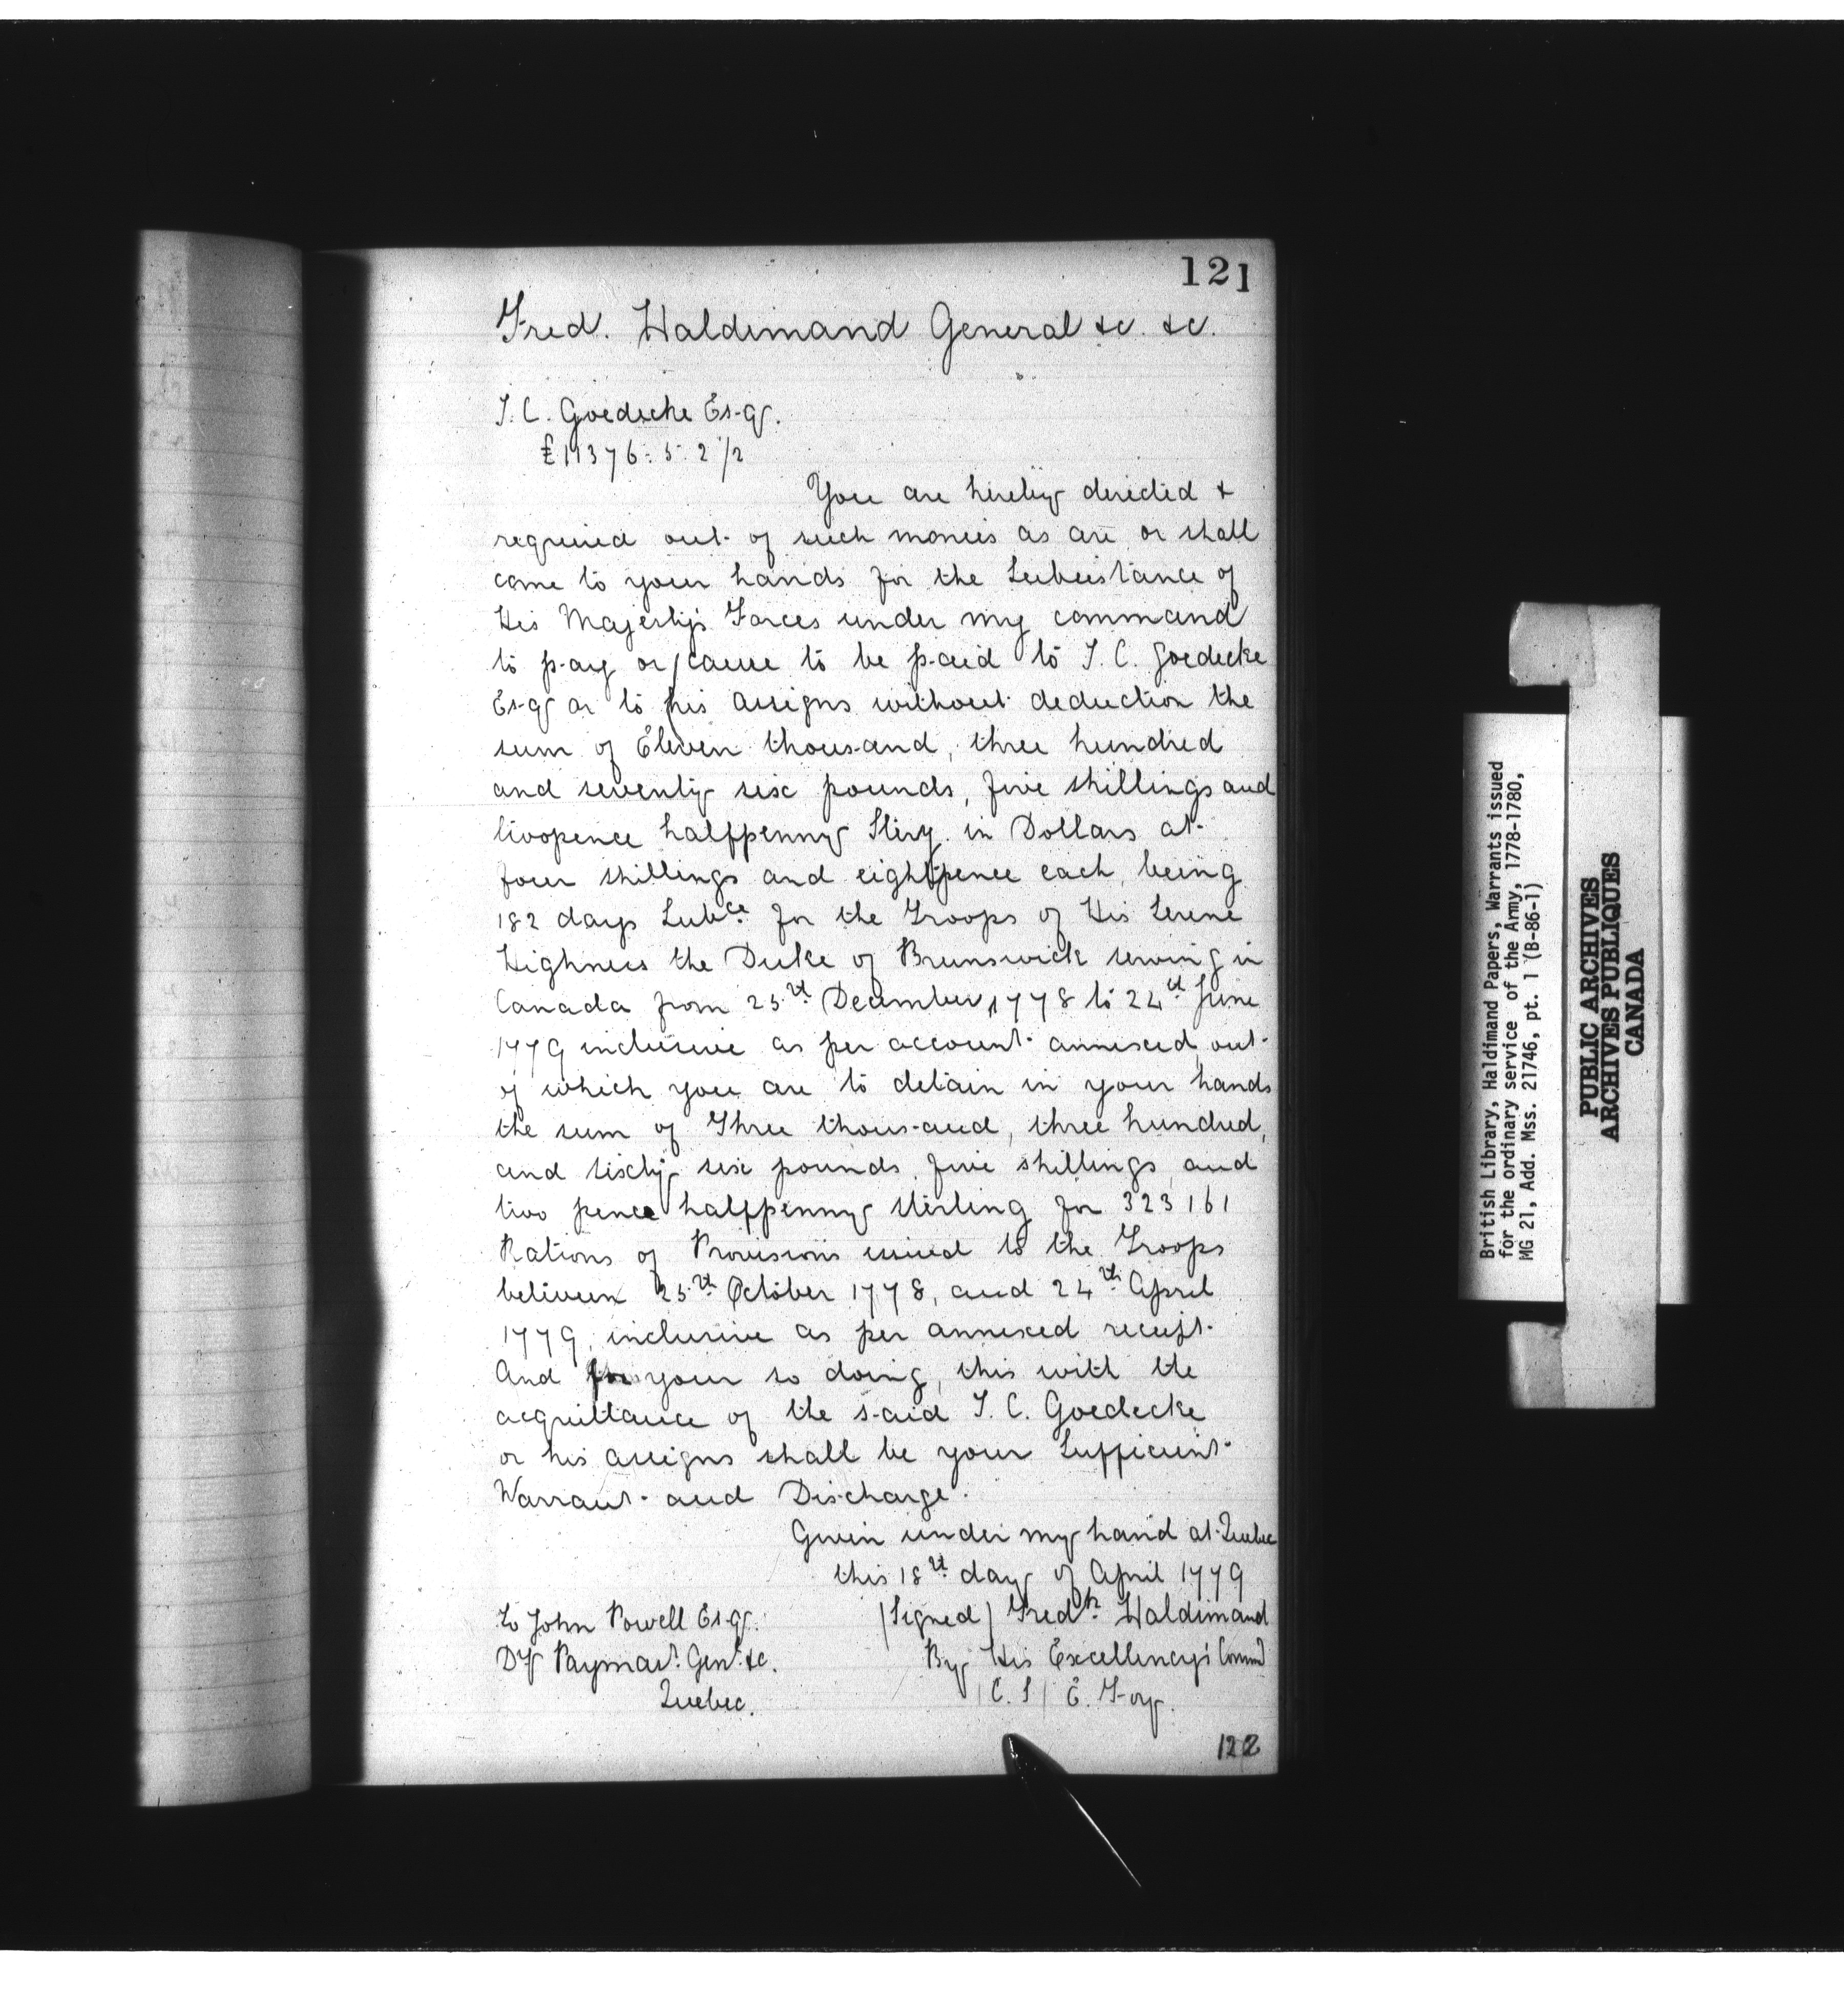 121
Fred. Haldimand General &c. &c.
J. C. Goedecke Esqr.
£11376: 5: 2 1/2
You are hereby directed &
required out of such monies as are or shall
come to your hands for the Subsistance of
His Majesty's Forces under my command
to pay or cause to be paid to J. C. Goedecke
Esqr or to his assigns without deduction the
sum of Eleven thousand, three hundred
and seventy six pounds, five shillings and
twopence halfpenny Sterg. in Dollars at
four shillings and eightpence each, being
182 days Subce. for the Troops of His Serene
Highness the Duke of Brunswick serving in
Canada from 25.th December, 1778 to 24th June
1779 inclusive as per account annexed, out
of which you are to detain in your hands
the sum of Three thousand, three hundred,
and sixty six pounds, five shillings, and
two pence halfpenny sterling for 323161
Rations of Provisions issued to the Troops
between 25.th October 1778, and 24th April
1779, inclusive as per annexed receipt.
And for your so doing, this with the
acquittance of the said J. C. Goedecke
or his assigns shall be your Sufficient
Warrant and Discharge.
Given under my hand at Quebec
this 18th day of April 1779
To John Powell Esqr. (Signed) Fredk. Haldimand
Dy Paymar. Genl. &c. By His Excellency's Commd
Quebec. (C. S) E. Foy.
122
British Library, Haldimand Papers, Warrants issued
for the ordinary service of the Army, 1778-1780,
MG 21, Add. Mss. 21746, pt. 1 (B-86-1)
PUBLIC ARCHIVES
ARCHIVES PUBLIQUES
CANADA